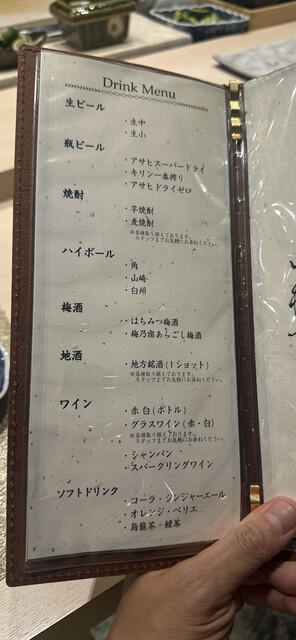 Drink Menu
生ビール
・生中
・生小
瓶ビール
・アサヒスーパードライ
・キリン一番搾り
・アサヒドライゼロ
焼酎
・芋焼酎
・麦焼酎
※各種取り揃えております。
スタッフまでお気軽にお尋ねください。
ハイボール
・角
・山崎
・白州
梅酒
・はちみつ梅酒
・梅乃宿あらごし梅酒
地酒
・地方銘酒(1ショット)
※各種取り揃えております。
スタッフまでお気軽にお尋ねください。
ワイン
・赤白(ボトル)
・グラスワイン(赤・白)
※各種取り揃えております。
スタッフまでお気軽にお尋ねください。
・シャンパン
・スパークリングワイン
ソフトドリンク
・コーラ・ジンジャーエール
・オレンジ・ペリエ
・烏龍茶・緑茶